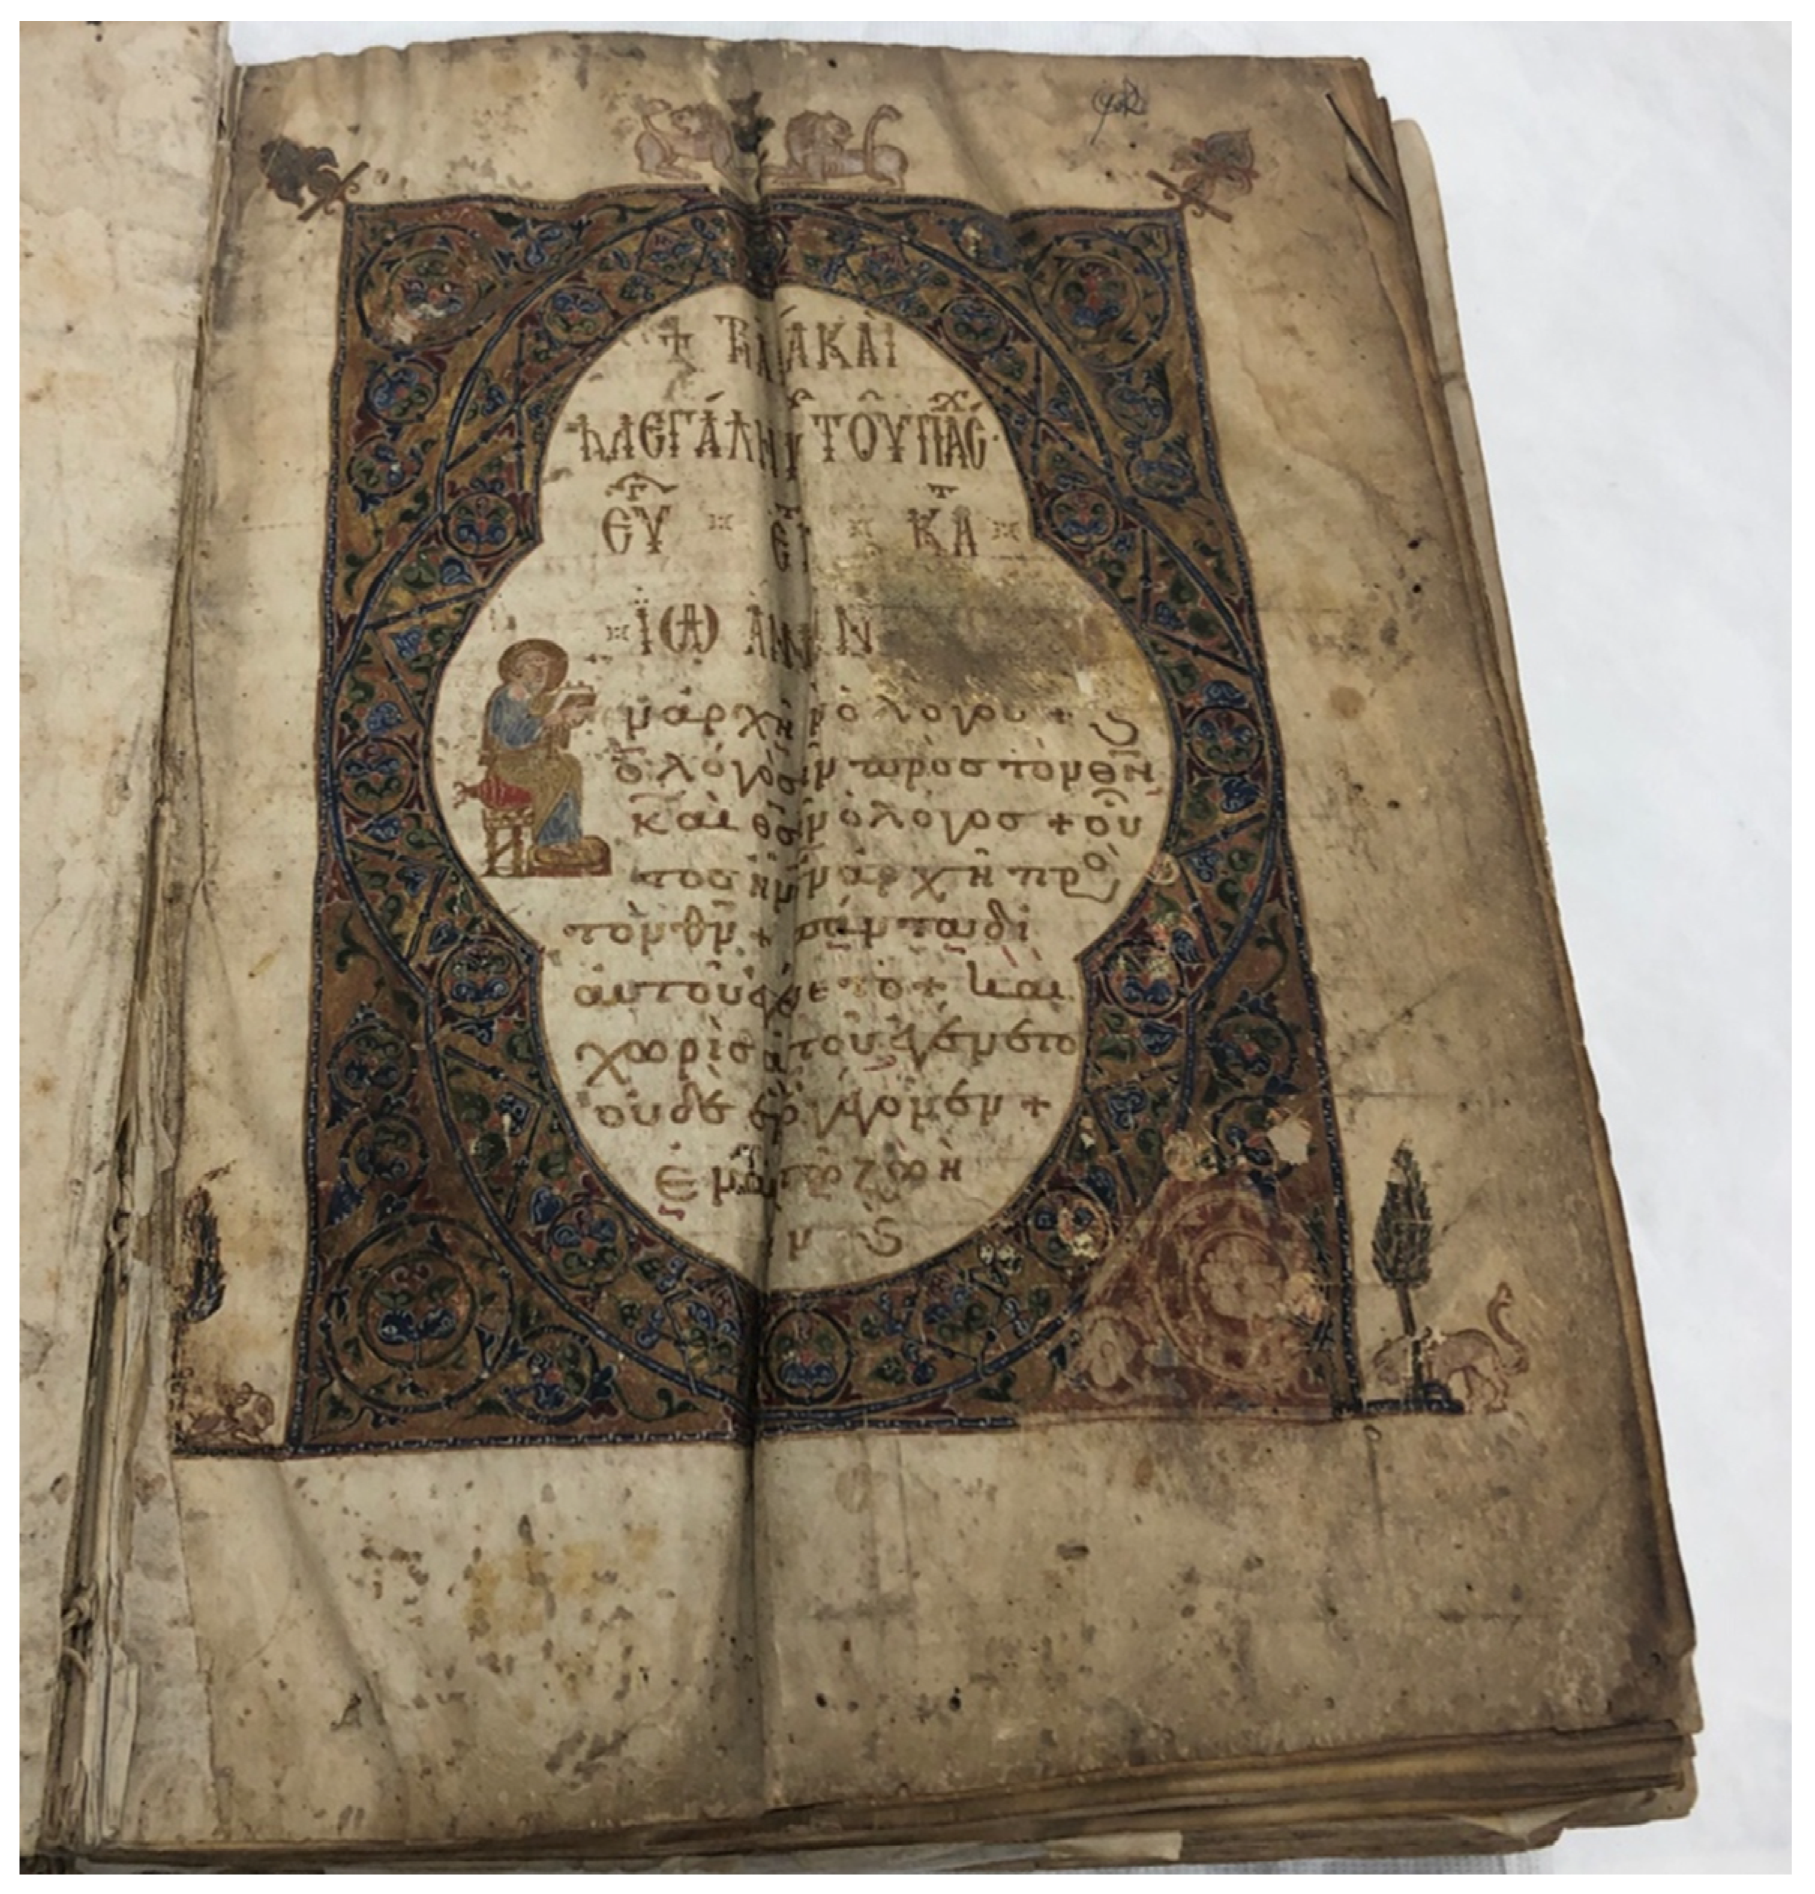 ΚΑΙ
ΜΕΓΆΛΗ ΤΟΥ ΠΑΣ
ΕΥ ΚΑ
ἸΩ ΑΝΝ
ἐν ἀρχῆ ὁ λόγος +
ὁ λόγος ἦν πρὸς τὸν θν
καὶ θσ ἦν ὁ λόγος + οὗ
τος ἦν ἐν ἀρχῆ πρὸς
τὸν θν + πάντα δι
αὐτοῦ ἐγένετο + καὶ
χωρὶς αὐτοῦ ἐγένετο
οὐδὲ ἓν ὃ γέγονεν +
ἐν αὐτῶ ζωὴ
ἦν